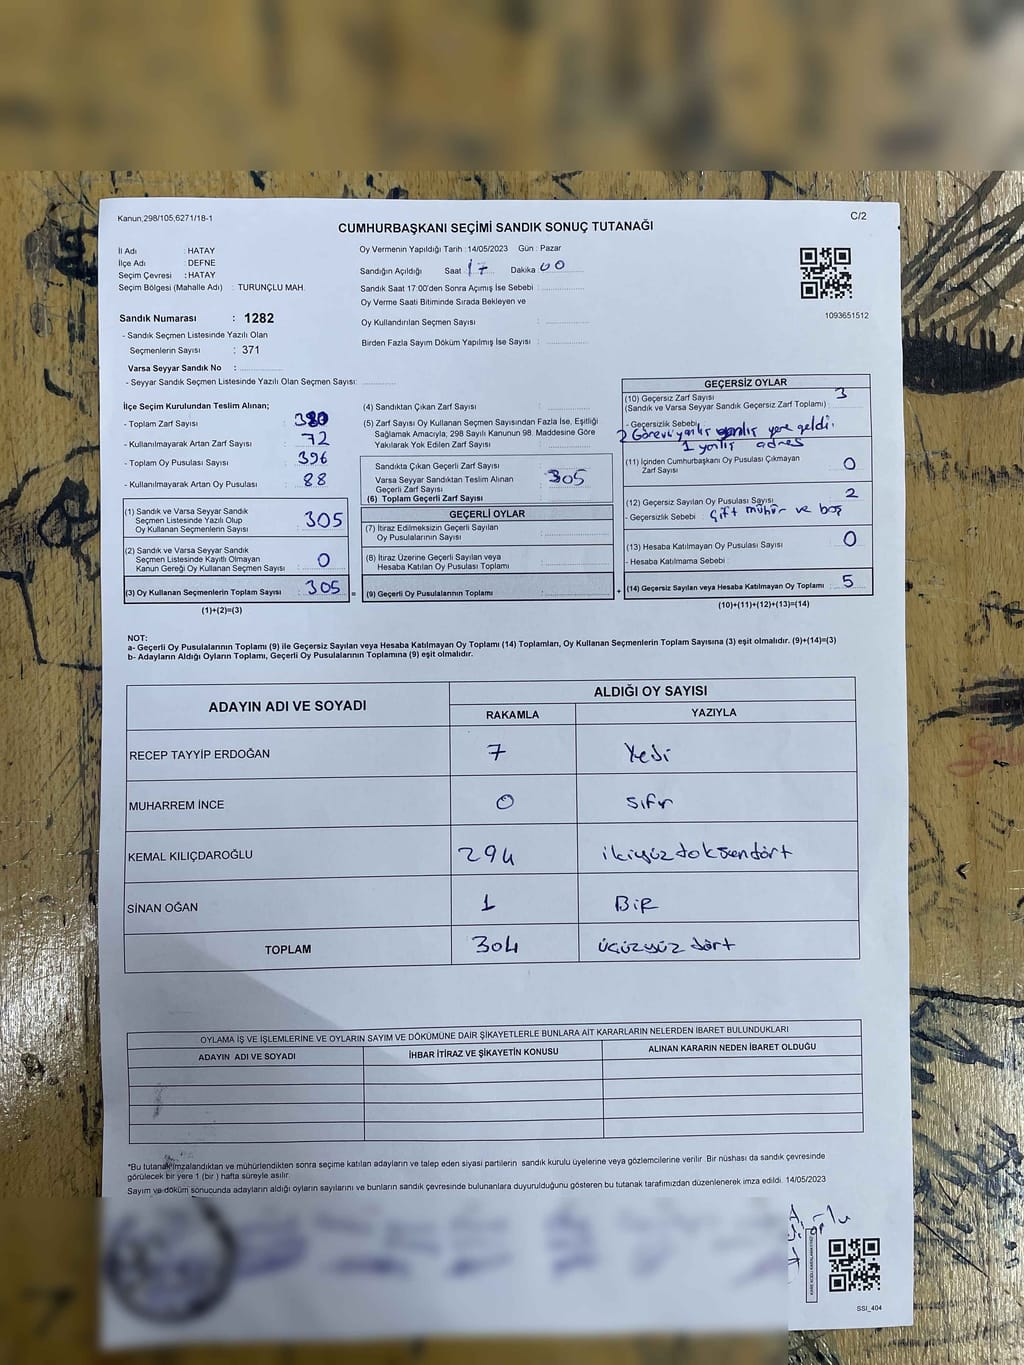 Kanun,298/105,6271/18-1
C/2
CUMHURBAŞKANI SEÇİMİ SANDIK SONUÇ TUTANAĞI
İl Adı : HATAY
İlçe Adı : DEFNE
Seçim Çevresi : HATAY
Seçim Bölgesi (Mahalle Adı) : TURUNÇLU MAH.
Oy Vermenin Yapıldığı Tarih :14/05/2023 Gün : Pazar
Sandığın Açıldığı Saat 17 Dakika 00
Sandık Saat 17:00'den Sonra Açımış İse Sebebi :
Oy Verme Saati Bitiminde Sırada Bekleyen ve
Oy Kullandırılan Seçmen Sayısı :
Birden Fazla Sayım Döküm Yapılmış İse Sayısı :
1093651512
Sandık Numarası : 1282
- Sandık Seçmen Listesinde Yazılı Olan
Seçmenlerin Sayısı : 371
Varsa Seyyar Sandık No :
- Seyyar Sandık Seçmen Listesinde Yazılı Olan Seçmen Sayısı:
İlçe Seçim Kurulundan Teslim Alınan;
- Toplam Zarf Sayısı : 380
- Kullanılmayarak Artan Zarf Sayısı : 72
- Toplam Oy Pusulası Sayısı : 396
- Kullanılmayarak Artan Oy Pusulası : 88
(1) Sandık ve Varsa Seyyar Sandık
Seçmen Listesinde Yazılı Olup
Oy Kullanan Seçmenlerin Sayısı : 305
(2) Sandık ve Varsa Seyyar Sandık
Seçmen Listesinde Kayıtlı Olmayan
Kanun Gereği Oy Kullanan Seçmen Sayısı : 0
(3) Oy Kullanan Seçmenlerin Toplam Sayısı : 305
(1)+(2)=(3)
(4) Sandıktan Çıkan Zarf Sayısı :
(5) Zarf Sayısı Oy Kullanan Seçmen Sayısından Fazla İse, Eşitliği
Sağlamak Amacıyla, 298 Sayılı Kanunun 98. Maddesine Göre
Yakılarak Yok Edilen Zarf Sayısı :
Sandıkta Çıkan Geçerli Zarf Sayısı
Varsa Seyyar Sandıktan Teslim Alınan
Geçerli Zarf Sayısı
(6) Toplam Geçerli Zarf Sayısı : 305
GEÇERLİ OYLAR
(7) İtiraz Edilmeksizin Geçerli Sayılan
Oy Pusulalarının Sayısı :
(8) İtiraz Üzerine Geçerli Sayılan veya
Hesaba Katılan Oy Pusulası Toplamı :
= (9) Geçerli Oy Pusulalarının Toplamı :
GEÇERSİZ OYLAR
(10) Geçersiz Zarf Sayısı 3
(Sandık ve Varsa Seyyar Sandık Geçersiz Zarf Toplamı) :
- Geçersizlik Sebebi
2 Görevli yanlış yere geldi.
1 yanlış adres
(11) İçinden Cumhurbaşkanı Oy Pusulası Çıkmayan
Zarf Sayısı : 0
(12) Geçersiz Sayılan Oy Pusulası Sayısı : 2
- Geçersizlik Sebebi : Çift mühür ve boş
(13) Hesaba Katılmayan Oy Pusulası Sayısı : 0
- Hesaba Katılmama Sebebi :
+ (14) Geçersiz Sayılan veya Hesaba Katılmayan Oy Toplamı : 5
(10)+(11)+(12)+(13)=(14)
NOT:
a- Geçerli Oy Pusulalarının Toplamı (9) ile Geçersiz Sayılan veya Hesaba Katılmayan Oy Toplamı (14) Toplamları, Oy Kullanan Seçmenlerin Toplam Sayısına (3) eşit olmalıdır. (9)+(14)=(3)
b- Adayların Aldığı Oyların Toplamı, Geçerli Oy Pusulalarının Toplamına (9) eşit olmalıdır.
ADAYIN ADI VE SOYADI
ALDIĞI OY SAYISI
RAKAMLA YAZIYLA
RECEP TAYYİP ERDOĞAN 7 Yedi
MUHARREM İNCE 0 Sıfır
KEMAL KILIÇDAROĞLU 294 ikiyüzdoksandört
SİNAN OĞAN 1 BİR
TOPLAM 304 üçüzyüz dört
OYLAMA İŞ VE İŞLEMLERİNE VE OYLARIN SAYIM VE DÖKÜMÜNE DAİR ŞİKAYETLERLE BUNLARA AİT KARARLARIN NELERDEN İBARET BULUNDUKLARI
ADAYIN ADI VE SOYADI İHBAR İTİRAZ VE ŞİKAYETİN KONUSU ALINAN KARARIN NEDEN İBARET OLDUĞU
*Bu tutanak imzalandıktan ve mühürlendikten sonra seçime katılan adayların ve talep eden siyasi partilerin sandık kurulu üyelerine veya gözlemcilerine verilir. Bir nüshası da sandık çevresinde
görülecek bir yere 1 (bir ) hafta süreyle asılır.
Sayım ve döküm sonucunda adayların aldığı oyların sayılarını ve bunların sandık çevresinde bulunanlara duyurulduğunu gösteren bu tutanak tarafımızdan düzenlenerek imza edildi. 14/05/2023
SSİ_404